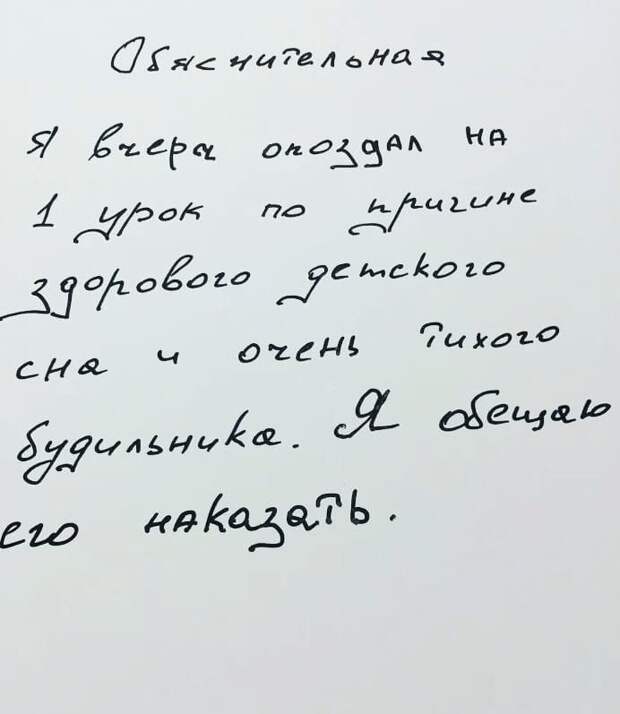 Объяснительная
Я вчера опоздал на
1 урок по причине
здорового детского
сна и очень тихого
будильника. Я обещаю
его наказать.